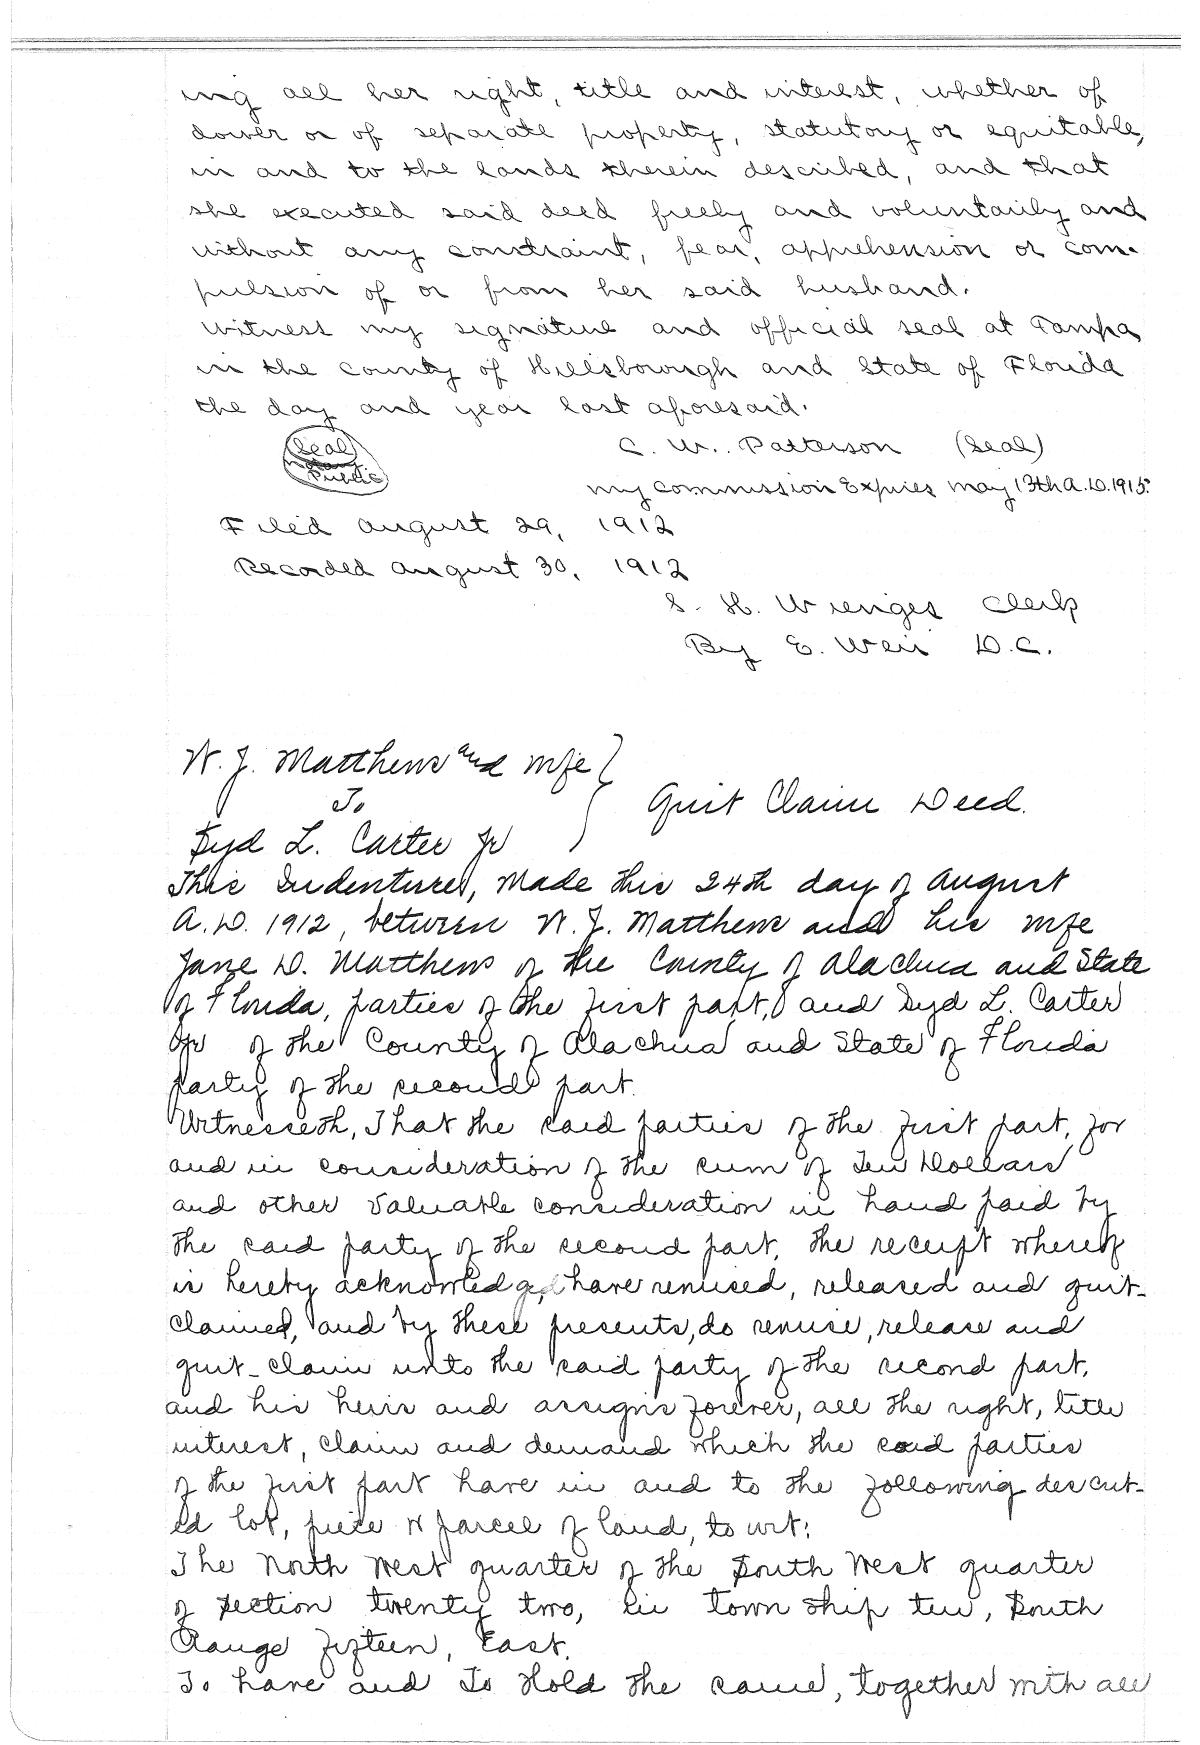 ing all her right, title and interest, whether of
dower or of separate property, statutory or equitable,
in and to the lands therein described, and that
she executed said deed freely and voluntarily and
without any constraint, fear, apprehension or com-
pulsion of or from her said husband.
Witness my signature and official seal at Tampa
in the county of Hillsborough and State of Florida
the day and year last aforesaid.
(Seal) C. W. Patterson (Seal)
Notary
Public
My commission Expires May 13th A.D. 1915.
Filed August 29, 1912
Recorded August 30, 1912
S. H. Wienges Clerk
By E. Weir D.C.
W. J. Matthews and wife
To Quit Claim Deed.
Syd L. Carter Jr
This Indenture, Made this 24th day of August
A.D. 1912, between W. J. Matthews and his wife
Jane D. Matthews of the County of Alachua and State
of Florida, parties of the first part, and Syd L. Carter
Jr of the County of Alachua and State of Florida
party of the second part.
Witnesseth, That the said parties of the first part, for
and in consideration of the sum of Ten Dollars
and other Valuable consideration in hand paid by
the said party of the second part, the receipt whereof
is hereby acknowledged, have remised, released and quit-
claimed, and by these presents, do remise, release and
quit-claim unto the said party of the second part,
and his heirs and assigns forever, all the right, title
interest, claim and demand which the said parties
of the first part have in and to the following describ-
ed lot, piece or parcel of land, to wit:
The North West quarter of the South West quarter
of Section twenty two, in town ship ten, South
Range fifteen, East.
To have and To Hold the same, together with all